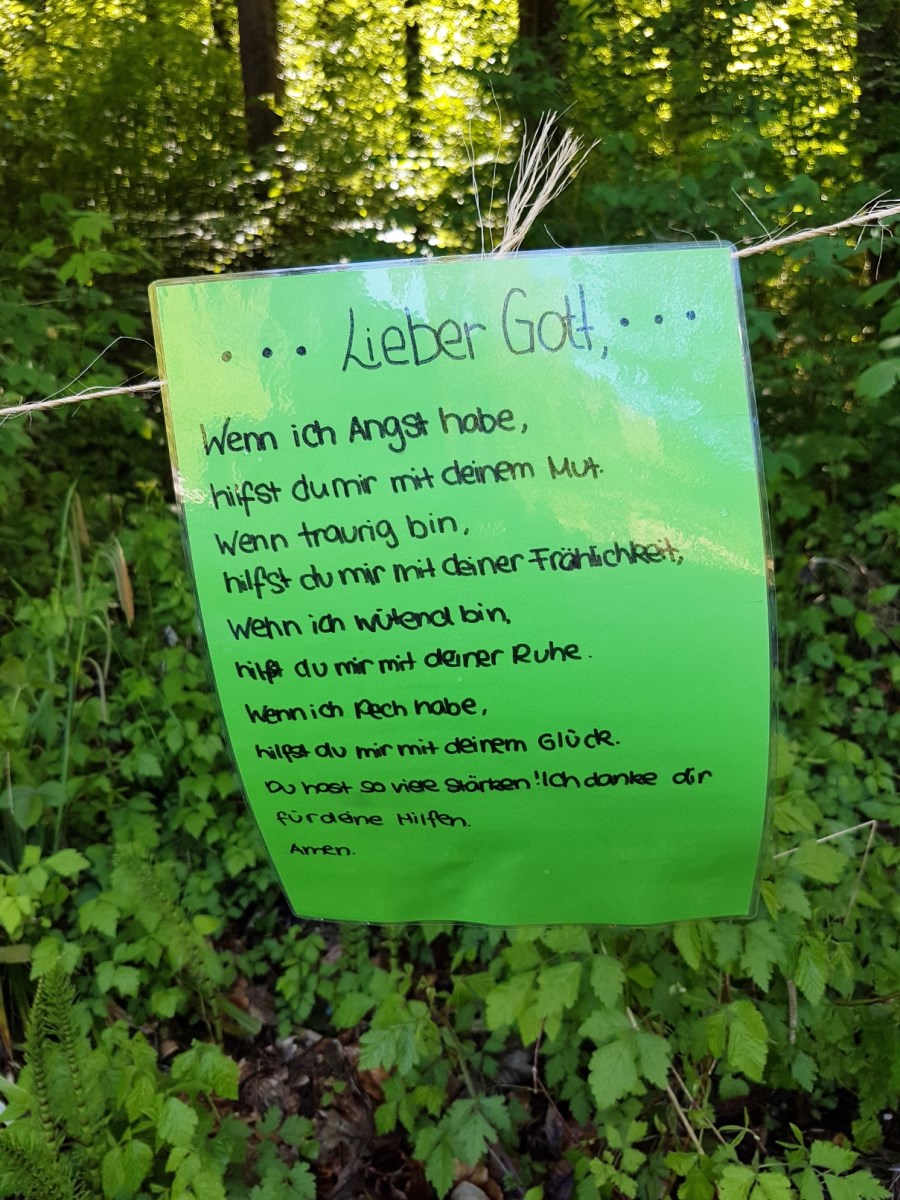 ... Lieber Gott, ...
Wenn ich Angst habe,
hilfst du mir mit deinem Mut.
Wenn traurig bin,
hilfst du mir mit deiner Fröhlichkeit,
Wenn ich wütend bin,
hilfst du mir mit deiner Ruhe.
Wenn ich Pech habe,
hilfst du mir mit deinem Glück.
Du hast so viele Stärken! Ich danke dir
für deine Hilfen.
Amen.